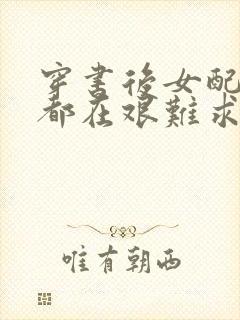 穿書後女配
都在艱難求
唯有朝西